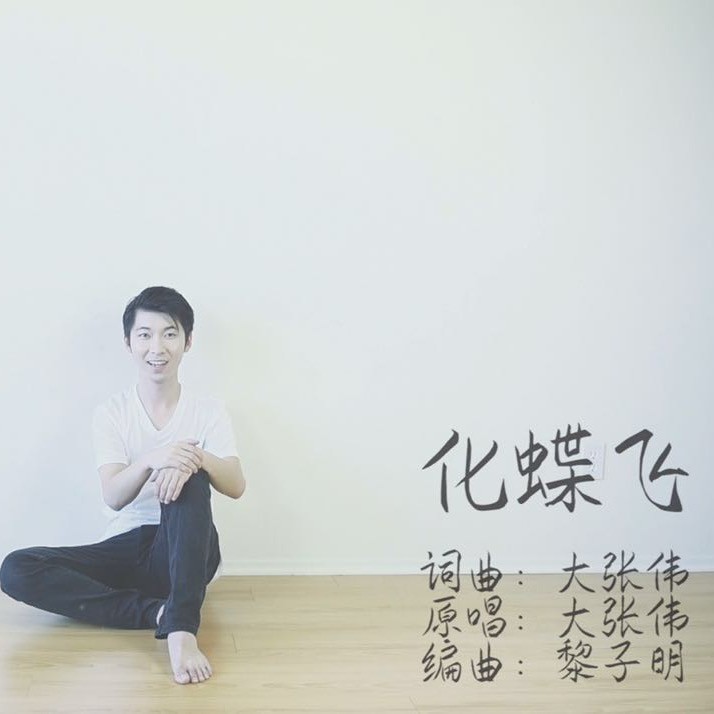 化蝶飞
词曲：大张伟
原唱：大张伟
编曲：黎子明